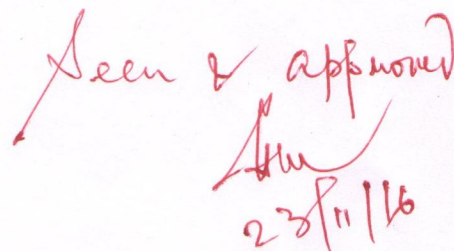 Seen & approved
23/11/16